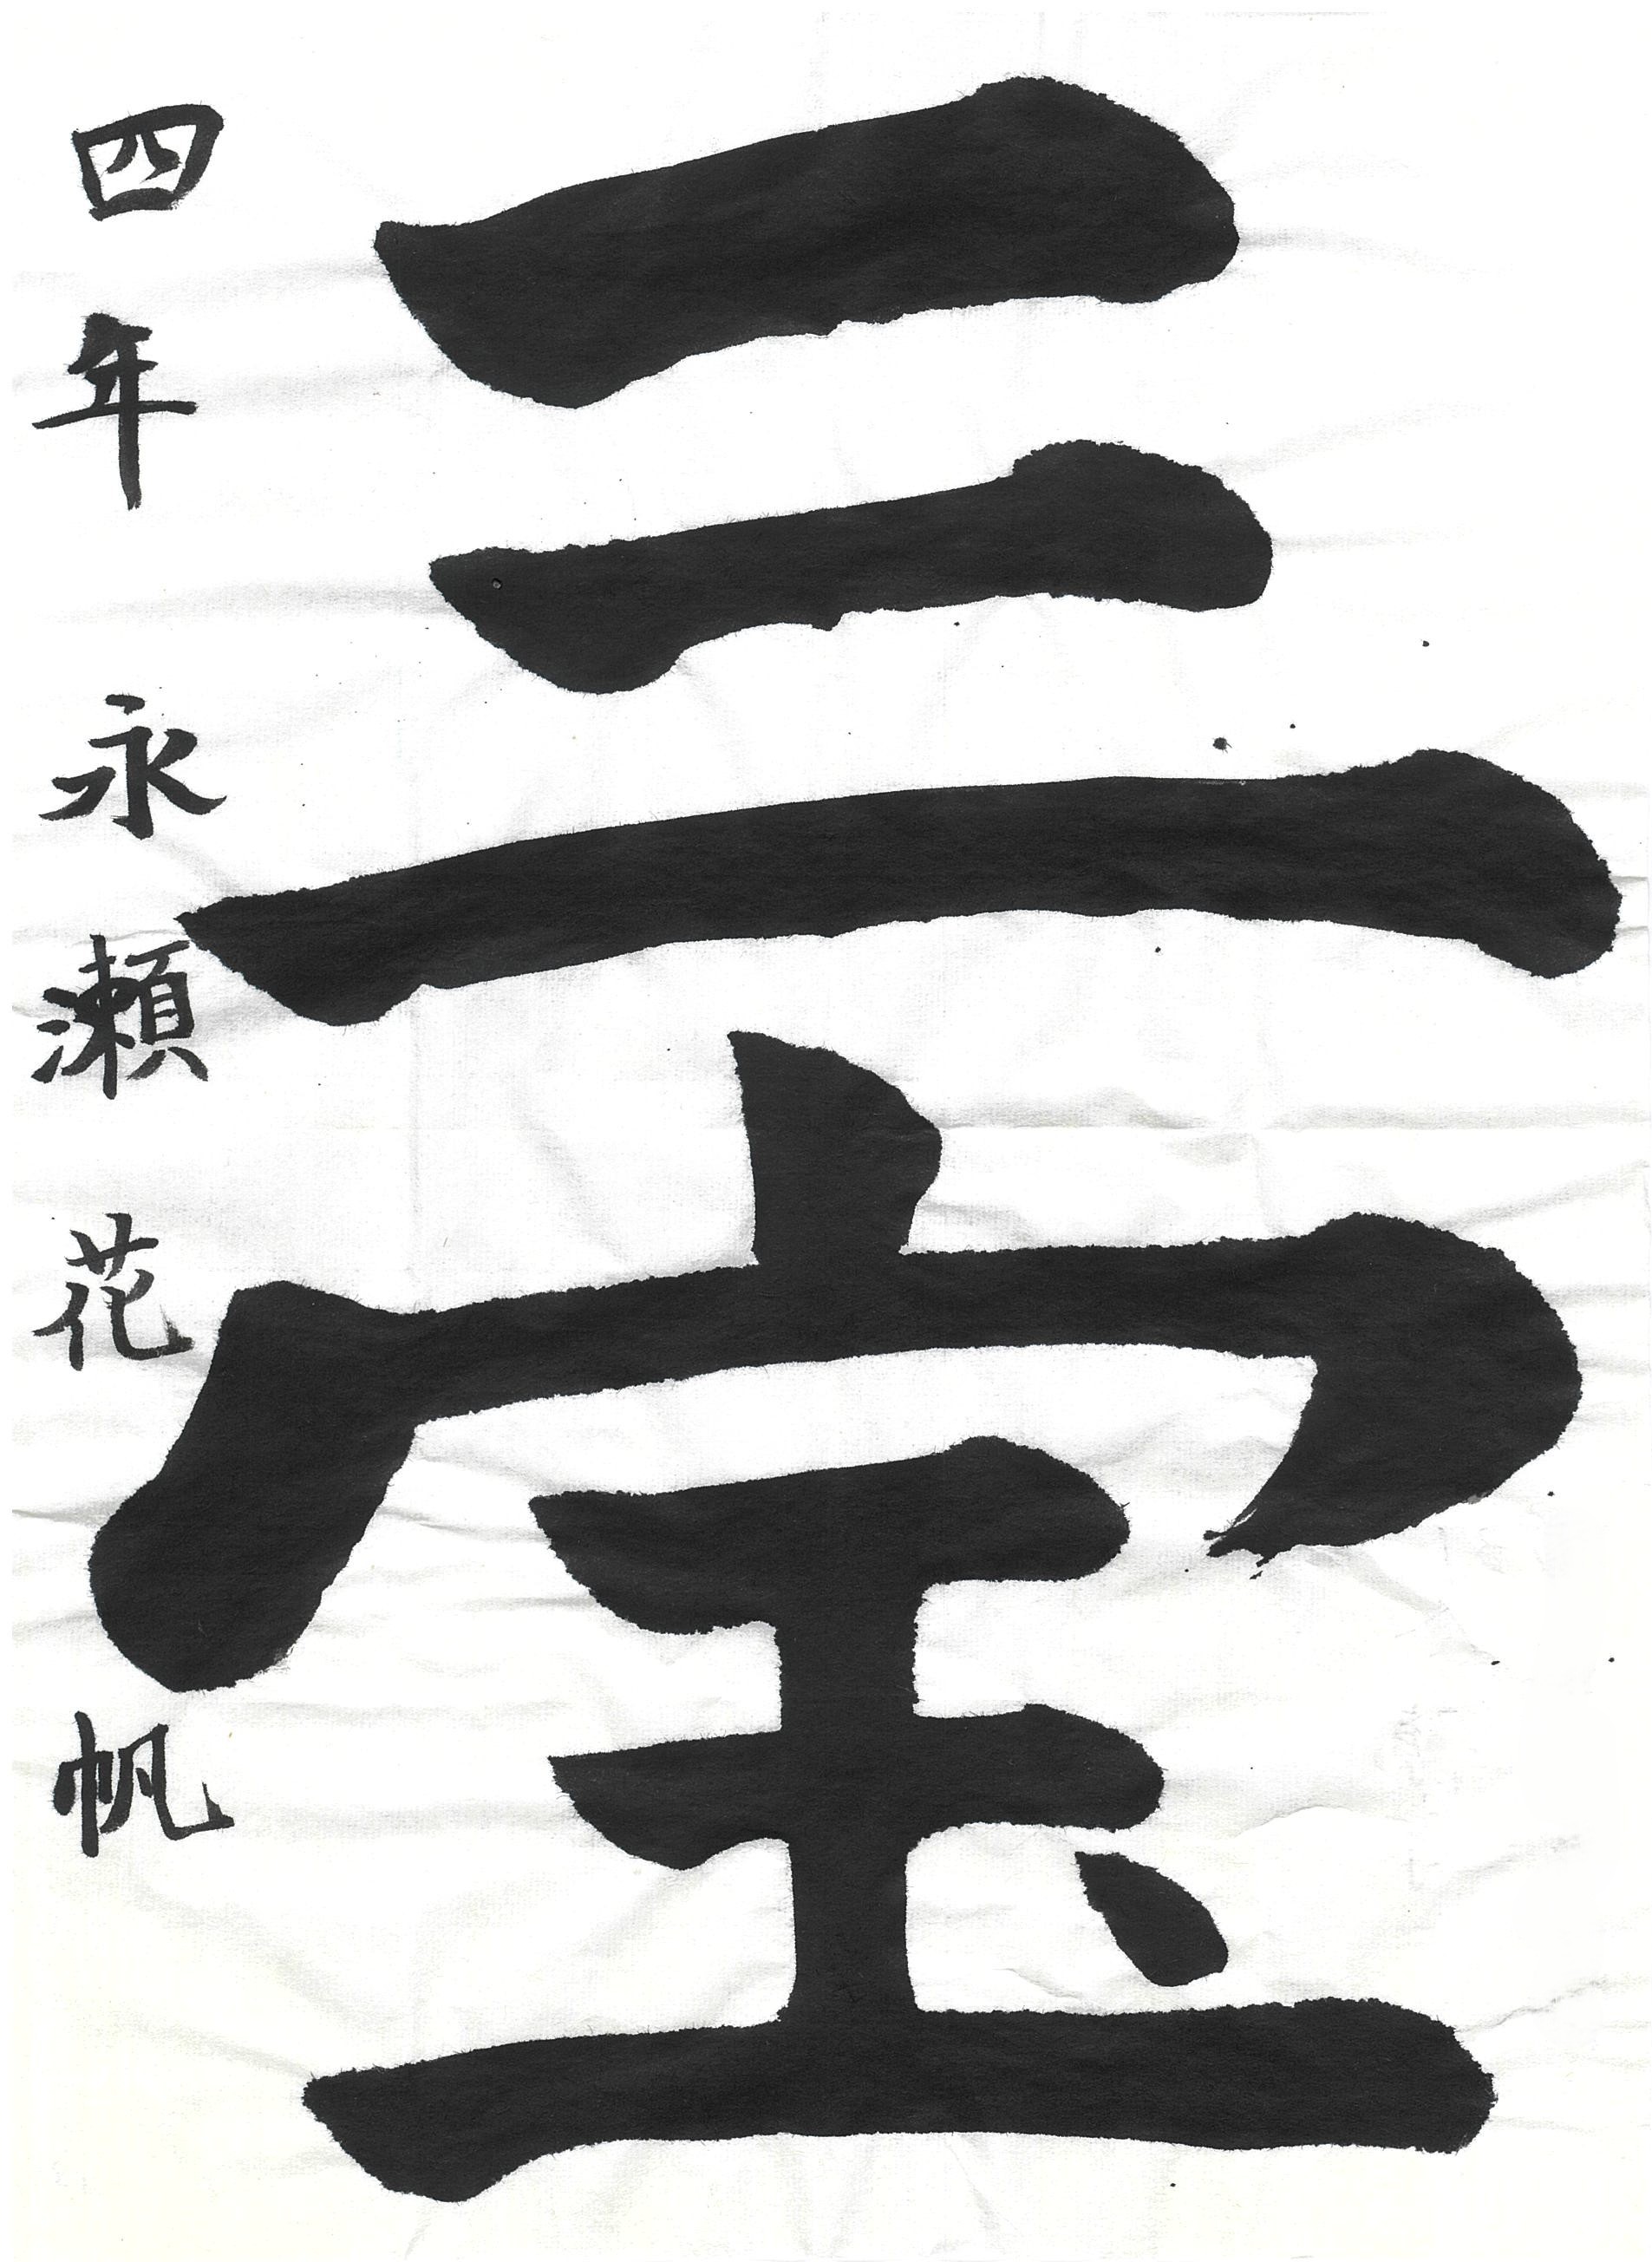 三宝
四年 永瀬花帆